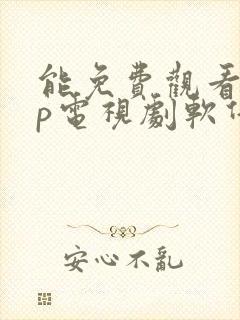 能免費觀看
p電視劇軟件
安心不亂